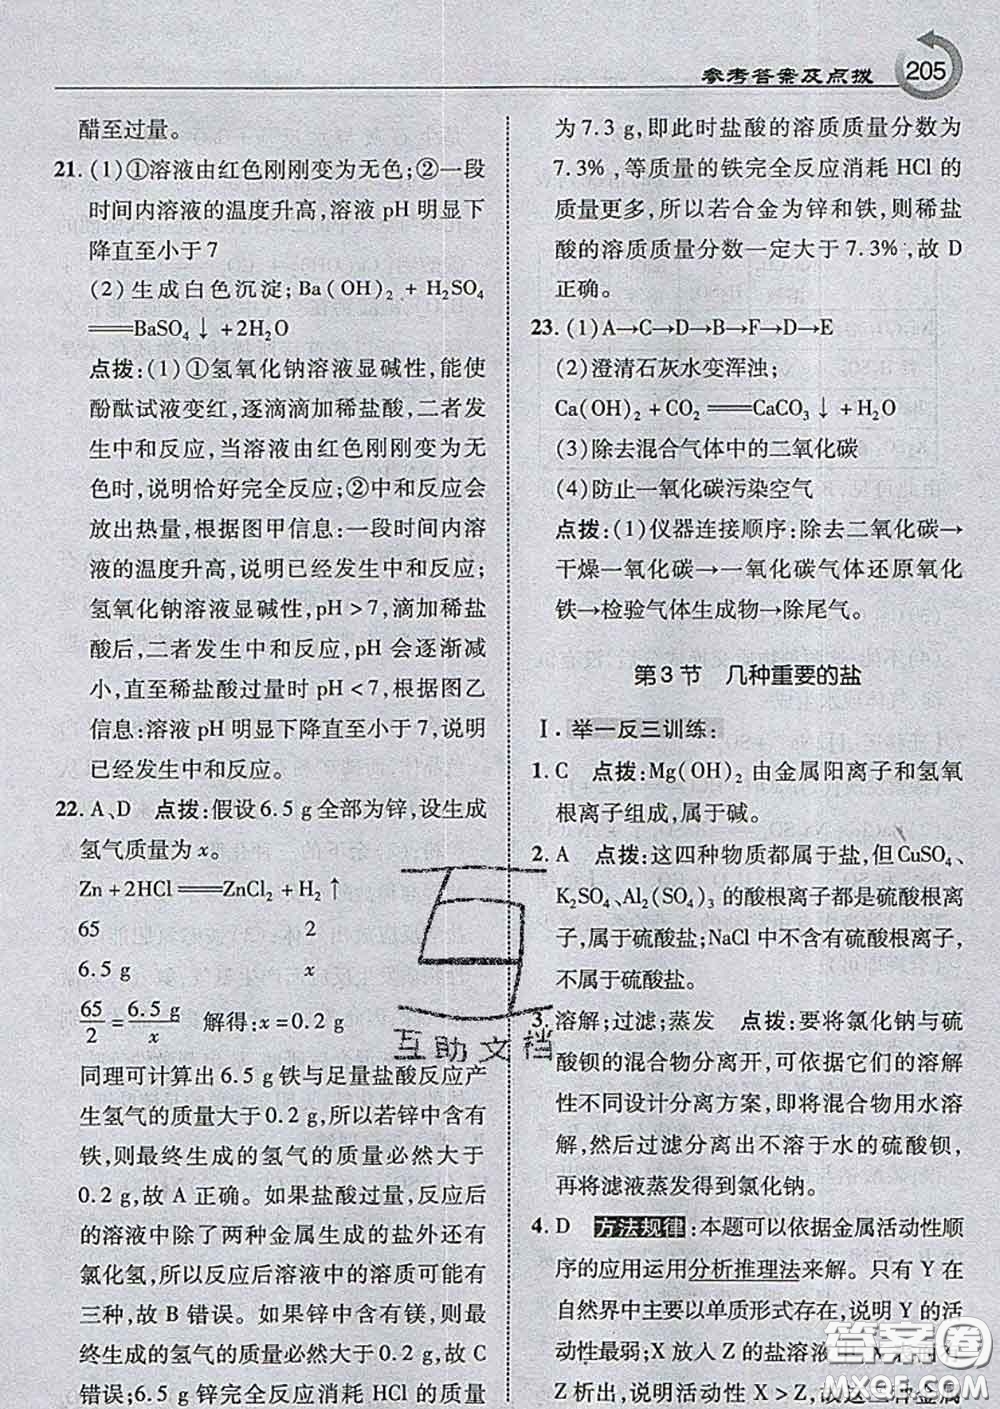 参考答案及点拨
205
醋至过量。
21. (1)①溶液由红色刚刚变为无色;②一段
时间内溶液的温度升高,溶液 pH 明显下
降直至小于 7
(2)生成白色沉淀;Ba(OH)₂ + H₂SO₄
══BaSO₄↓+2H₂O
点拨:(1)①氢氧化钠溶液显碱性,能使
酚酞试液变红,逐滴滴加稀盐酸,二者发
生中和反应,当溶液由红色刚刚变为无
色时,说明恰好完全反应;②中和反应会
放出热量,根据图甲信息:一段时间内溶
液的温度升高,说明已经发生中和反应;
氢氧化钠溶液显碱性,pH>7,滴加稀盐
酸后,二者发生中和反应,pH 会逐渐减
小,直至稀盐酸过量时 pH<7,根据图乙
信息:溶液 pH 明显下降直至小于 7,说明
已经发生中和反应。
22. A、D 点拨:假设 6.5 g 全部为锌,设生成
氢气质量为 x。
Zn +2HCl══ZnCl₂ + H₂↑
65 2
6.5 g x
65/2=6.5 g/x 解得:x=0.2 g
同理可计算出 6.5 g 铁与足量盐酸反应产
生氢气的质量大于 0.2 g,所以若锌中含有
铁,则最终生成的氢气的质量必然大于
0.2 g,故 A 正确。如果盐酸过量,则反应后
的溶液中除了两种金属生成的盐外还有
氯化氢,所以反应后溶液中的溶质可能有
三种,故 B 错误。如果锌中含有镁,则最
终生成的氢气的质量必然大于 0.2 g,故 C
错误;6.5 g 锌完全反应消耗 HCl 的质量
为 7.3 g,即此时盐酸的溶质质量分数为
7.3%,等质量的铁完全反应消耗 HCl 的
质量更多,所以若合金为锌和铁,则稀盐
酸的溶质质量分数一定大于 7.3%,故 D
正确。
23. (1)A→C→D→B→F→D→E
(2)澄清石灰水变浑浊;
Ca(OH)₂ + CO₂══CaCO₃↓+H₂O
(3)除去混合气体中的二氧化碳
(4)防止一氧化碳污染空气
点拨:(1)仪器连接顺序:除去二氧化碳→
干燥一氧化碳→一氧化碳气体还原氧化
铁→检验气体生成物→除尾气。
第 3 节 几种重要的盐
Ⅰ. 举一反三训练:
1. C 点拨:Mg(OH)₂ 由金属阳离子和氢氧
根离子组成,属于碱。
2. A 点拨:这四种物质都属于盐,但CuSO₄、
K₂SO₄、Al₂(SO₄)₃ 的酸根离子都是硫酸根离
子,属于硫酸盐;NaCl 中不含有硫酸根离子,
不属于硫酸盐。
3. 溶解;过滤;蒸发 点拨:要将氯化钠与硫
酸钡的混合物分离开,可依据它们的溶解
性不同设计分离方案,即将混合物用水溶
解,然后过滤分离出不溶于水的硫酸钡,
再将滤液蒸发得到氯化钠。
4. D 方法规律:本题可以依据金属活动性顺
序的应用运用分析推理法来解。只有 Y 在
自然界中主要以单质形式存在,说明 Y 的活
动性最弱;X 放入 Z 的盐溶液中
Z 析出,说明活动性 X>Z,故这三种金属
互助文档
答案圈
MXQE.COM